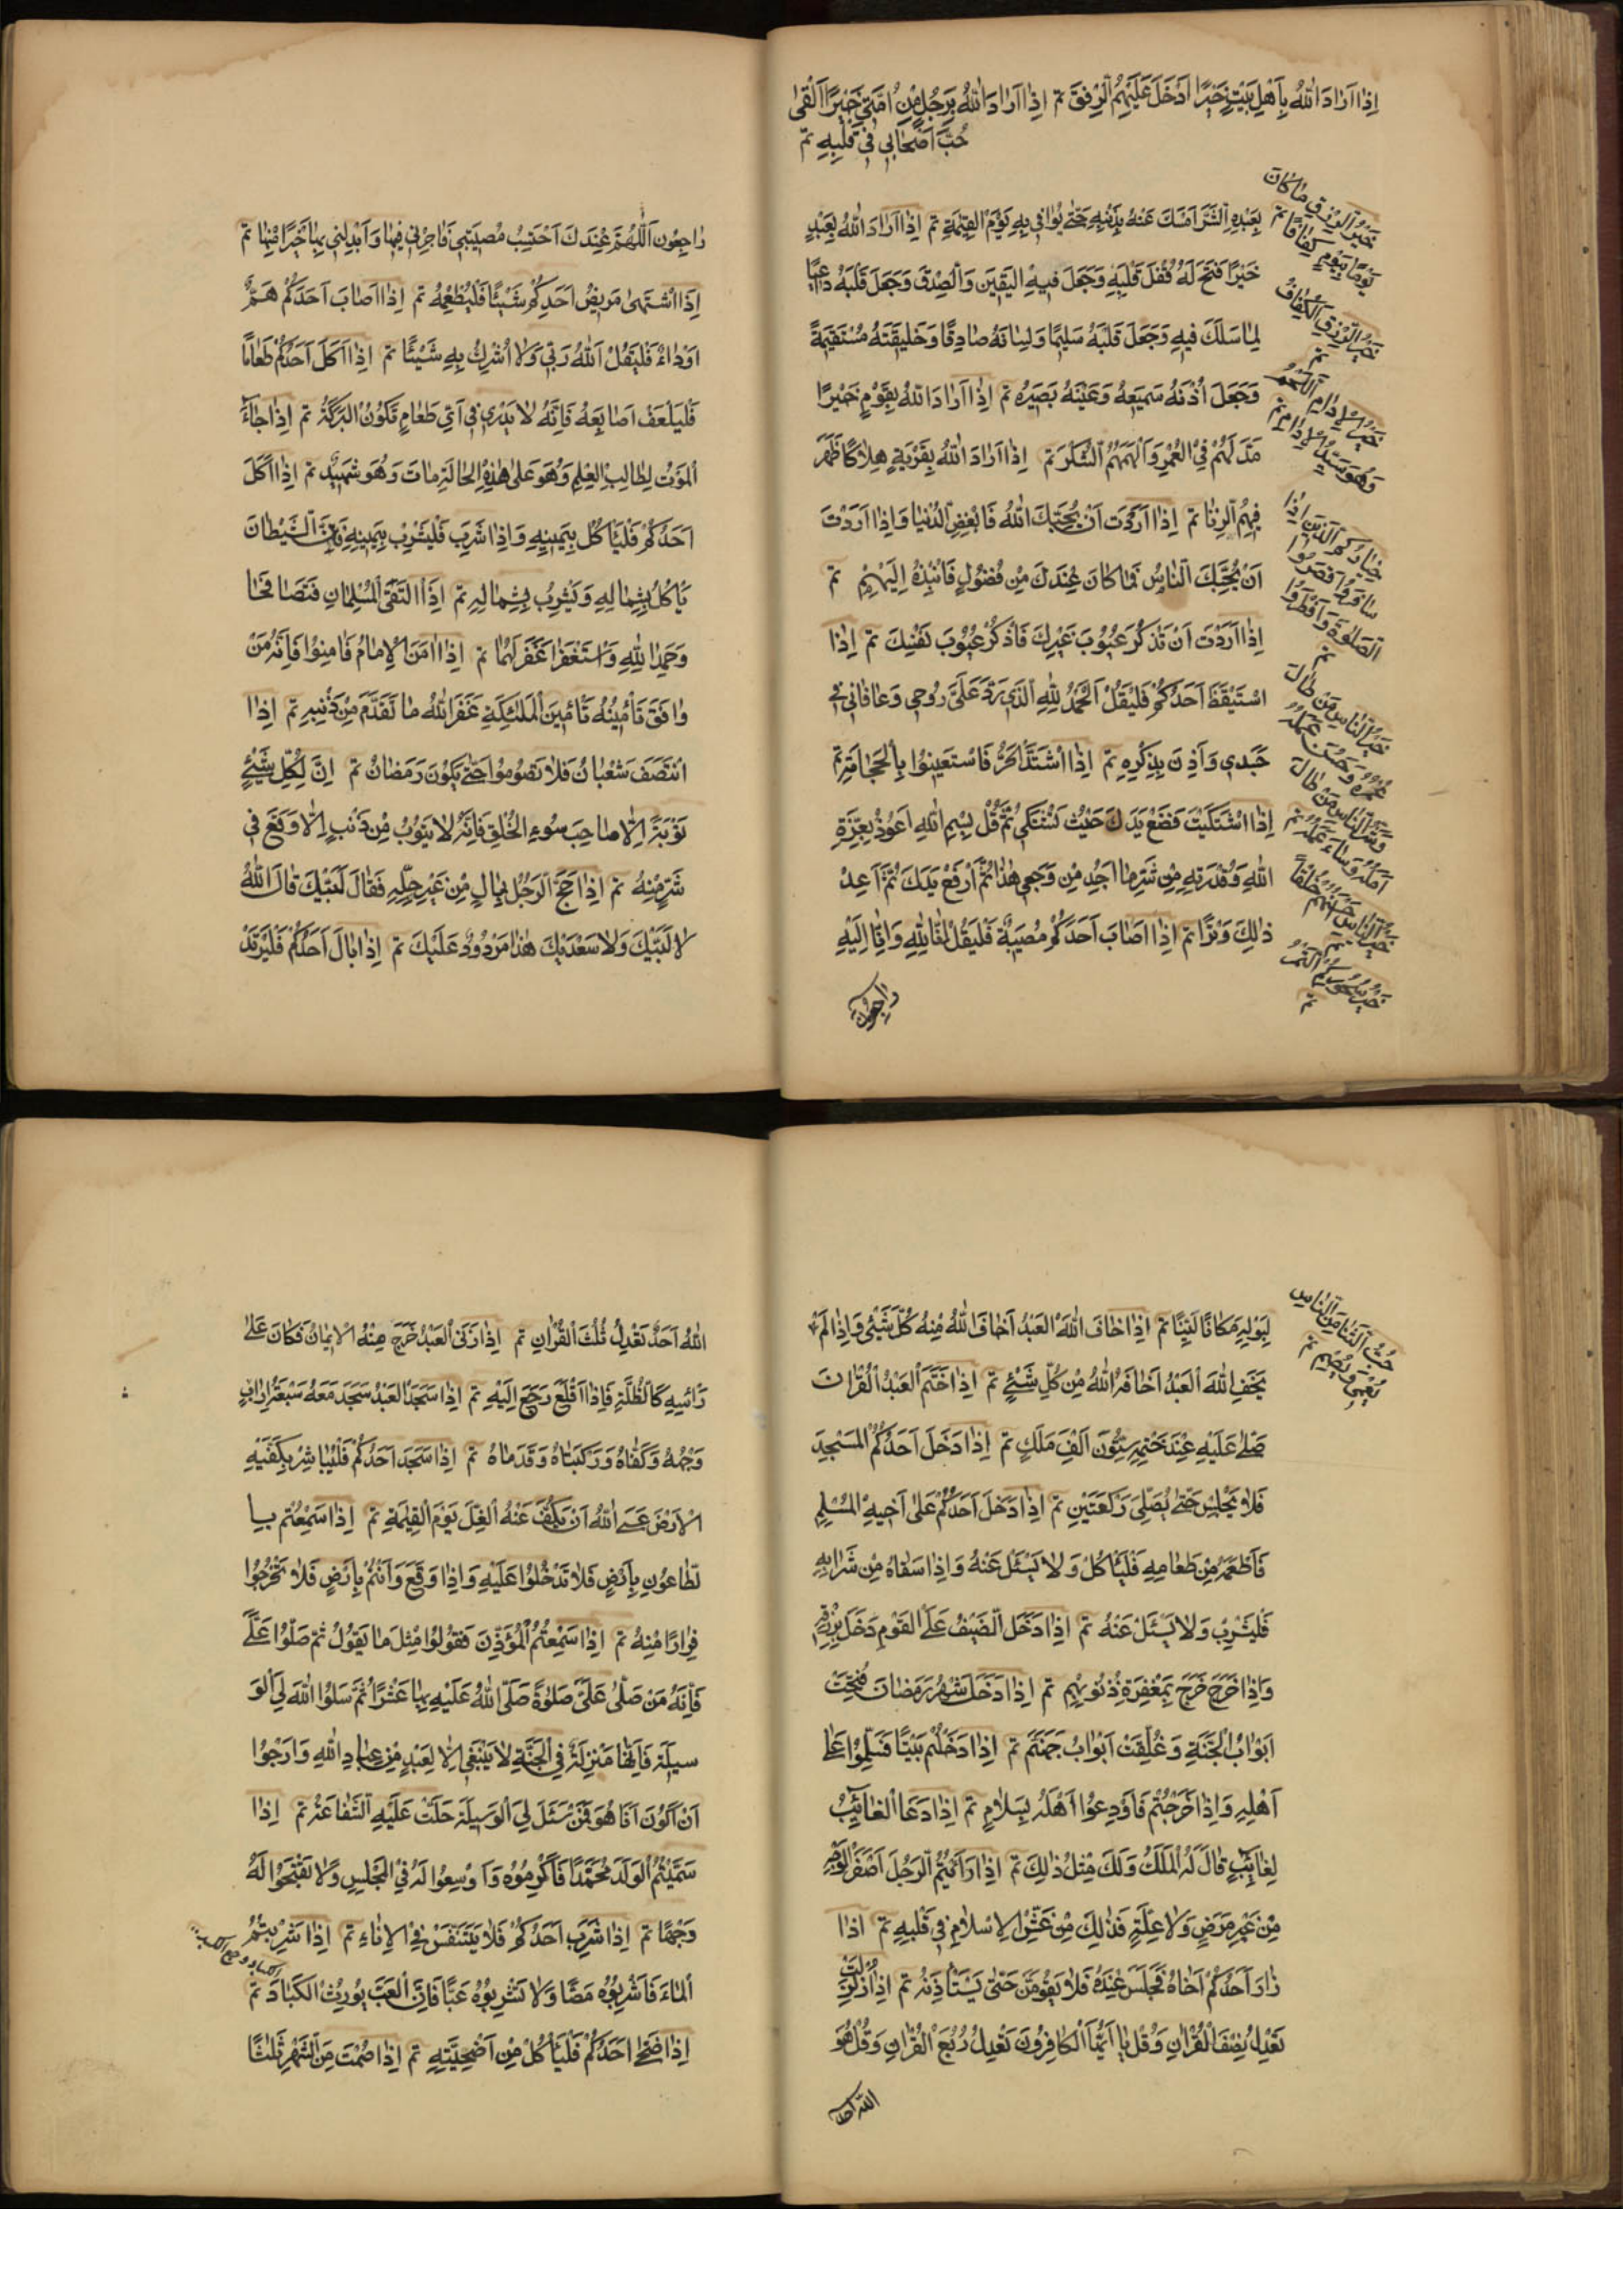 إِذَا أَرَادَ اللّٰهُ بِأَهْلِ بَيْتٍ خَيْرًا أَدْخَلَ عَلَيْهِمُ الرِّفْقَ تم إِذَا أَرَادَ اللّٰهُ بِرَجُلٍ مِنْ أُمَّتِي خَيْرًا أَلْقَى
حُبَّ أَصْحَابِي فِي قَلْبِهِ تم
بِعَبْدِهِ الشَّرَّ أَمْسَكَ عَنْهُ بِذَنْبِهِ حَتّٰى يُوَافِيَ بِهِ يَوْمَ الْقِيٰمَةِ تم إِذَا أَرَادَ اللّٰهُ بِعَبْدٍ
خَيْرًا فَتَحَ لَهُ قُفْلَ قَلْبِهِ وَجَعَلَ فِيهِ الْيَقِينَ وَالصِّدْقَ وَجَعَلَ قَلْبَهُ وَاعِيًا
لِمَا سَلَكَ فِيهِ وَجَعَلَ قَلْبَهُ سَلِيمًا وَلِسَانَهُ صَادِقًا وَخَلِيقَتَهُ مُسْتَقِيمَةً
وَجَعَلَ أُذُنَهُ سَمِيعَةً وَعَيْنَهُ بَصِيرَة تم إِذَا أَرَادَ اللّٰهُ بِقَوْمٍ خَيْرًا
مَدَّ لَهُمْ فِي الْعُمْرِ وَأَلْهَمَهُمُ الشُّكْرَ تم إِذَا أَرَادَ اللّٰهُ بِقَرْيَةٍ هِلَاكًا ظَهَرَ
فِيهِمُ الزِّنَا تم إِذَا أَرَدْتَ أَنْ يُحِبَّكَ اللّٰهُ فَابْغِضِ الدُّنْيَا وَإِذَا أَرَدْتَ
أَنْ يُحِبَّكَ النَّاسُ فَمَا كَانَ عِنْدَكَ مِنْ فُضُولٍ فَانْبِذْهُ إِلَيْهِمْ تم
إِذَا أَرَدْتَ أَنْ تَذْكُرَ عُيُوبَ غَيْرِكَ فَاذْكُرْ عُيُوبَ نَفْسِكَ تم إِذَا
اسْتَيْقَظَ أَحَدُكُمْ فَلْيَقُلْ اَلْحَمْدُ لِلّٰهِ الَّذِي رَدَّ عَلَيَّ رُوحِي وَعَافَانِي فِي
جَسَدِي وَأَذِنَ بِذِكْرِهِ تم إِذَا اشْتَدَّ الْحَرُّ فَاسْتَعِينُوا بِالْحِجَامَةِ تم
إِذَا اشْتَكَيْتَ فَضَعْ يَدَكَ حَيْثُ تَشْتَكِي ثُمَّ قُلْ بِسْمِ اللّٰهِ أَعُوذُ بِعِزَّةِ
اللّٰهِ وَقُدْرَتِهِ مِنْ شَرِّ مَا أَجِدُ مِنْ وَجَعِي هٰذَا ثُمَّ ارْفَعْ يَدَكَ ثُمَّ أَعِدْ
ذٰلِكَ وَتْرًا تم إِذَا أَصَابَ أَحَدَكُمْ مُصِيبَةٌ فَلْيَقُلْ إِنَّا لِلّٰهِ وَإِنَّا إِلَيْهِ
رَاجِعُونَ
خَيْرُ الرِّزْقِ مَا كَانَ
يَوْمًا بِيَوْمٍ كَفَافًا تم
خَيْرُ الرِّزْقِ الْكَفَافُ
تم
خَيْرُ الْإِدَامِ اللَّحْمُ
وَهُوَ سَيِّدُ الْإِدَامِ تم
خِيَارُكُمُ الَّذِينَ إِذَا
سَافَرُوا قَصَرُوا
الصَّلٰوةَ وَأَفْطَرُوا
تم
خَيْرُ النَّاسِ مَنْ طَالَ
عُمْرُهُ وَحَسُنَ عَمَلُهُ
وَشَرُّ النَّاسِ مَنْ طَالَ
وَسَاءَ عَمَلُهُ تم
خَيْرُ النَّاسِ أَحْسَنُهُمْ خُلُقًا
تم
خَيْرُ سَحُورِكُمُ التَّمْرُ
تم
رَاجِعُون اَللّٰهُمَّ عِنْدَكَ أَحْتَسِبُ مُصِيبَتِي فَأْجُرْنِي فِيهَا وَأَبْدِلْنِي بِهَا خَيْرًا مِنْهَا تم
إِذَا اشْتَهَى مَرِيضُ أَحَدِكُمْ شَيْئًا فَلْيُطْعِمْهُ تم إِذَا أَصَابَ أَحَدَكُمْ هَمٌّ
أَوْ دَاءٌ فَلْيَقُلْ اَللّٰهُ رَبِّي وَلَا أُشْرِكُ بِهِ شَيْئًا تم إِذَا أَكَلَ أَحَدُكُمْ طَعَامًا
فَلْيَلْعَقْ أَصَابِعَهُ فَإِنَّهُ لَا يَدْرِي فِي أَيِّ طَعَامٍ تَكُونُ الْبَرَكَةُ تم إِذَا جَاءَ
الْمَوْتُ لِطَالِبِ الْعِلْمِ وَهُوَ عَلَى هٰذِهِ الْحَالَةِ مَاتَ وَهُوَ شَهِيدٌ تم إِذَا أَكَلَ
أَحَدُكُمْ فَلْيَأْكُلْ بِيَمِينِهِ وَإِذَا شَرِبَ فَلْيَشْرَبْ بِيَمِينِهِ فَإِنَّ الشَّيْطَانَ
يَأْكُلُ بِشِمَالِهِ وَيَشْرِبُ بِشِمَالِهِ تم إِذَا الْتَقَى الْمُسْلِمَانِ فَتَصَافَحَا
وَحَمِدَا لِلّٰهِ وَاسْتَغْفَرَا غَفَرَ لَهُمَا تم إِذَا أَمَّنَ الْإِمَامُ فَأَمِّنُوا فَإِنَّهُ مَنْ
وَافَقَ تَأْمِينُهُ تَأْمِينَ الْمَلٰئِكَةِ غَفَرَ اللّٰهُ مَا تَقَدَّمَ مِنْ ذَنْبِهِ تم إِذَا
انْتَصَفَ شَعْبَانُ فَلَا تَصُومُوا حَتّٰى يَكُونَ رَمَضَانُ تم إِنَّ لِكُلِّ شَيْئٍ
تَوْبَةً إِلَّا صَاحِبَ سُوءِ الْخُلُقِ فَإِنَّهُ لَا يَتُوبُ مِنْ ذَنْبٍ إِلَّا وَقَعَ فِي
شَرٍّ مِنْهُ تم إِذَا حَجَّ الرَّجُلُ بِمَالٍ مِنْ غَيْرِ حِلِّهِ فَقَالَ لَبَّيْكَ قَالَ اللّٰهُ
لَا لَبَّيْكَ وَلَا سَعْدَيْكَ هٰذَا مَرْدُودٌ عَلَيْكَ تم إِذَا بَالَ أَحَدُكُمْ فَلْيَرْتَدْ
لِبَوْلِهِ مَكَانًا لَيِّنًا تم إِذَا خَافَ اللّٰهَ الْعَبْدُ أَخَافَ اللّٰهُ مِنْهُ كُلَّ شَيْئٍ وَإِذَا لَمْ
يَخَفِ اللّٰهَ الْعَبْدُ أَخَافَهُ اللّٰهُ مِنْ كُلِّ شَيْئٍ تم إِذَا خَتَمَ الْعَبْدُ الْقُرْاٰنَ
صَلّٰى عَلَيْهِ عِنْدَ خَتْمِهِ سِتُّونَ أَلْفَ مَلَكٍ تم إِذَا دَخَلَ أَحَدُكُمُ الْمَسْجِدَ
فَلَا يَجْلِسْ حَتّٰى يُصَلِّيَ رَكْعَتَيْنِ تم إِذَا دَخَلَ أَحَدُكُمْ عَلَى أَخِيهِ الْمُسْلِمِ
فَأَطْعَمَهُ مِنْ طَعَامِهِ فَلْيَأْكُلْ وَلَا يَسْئَلْ عَنْهُ وَإِذَا سَقَاهُ مِنْ شَرَابِهِ
فَلْيَشْرِبْ وَلَا يَسْئَلْ عَنْهُ تم إِذَا دَخَلَ الضَّيْفُ عَلَى الْقَوْمِ دَخَلَ بِرِزْقِهِ
وَإِذَا خَرَجَ خَرَجَ بِمَغْفِرَةِ ذُنُوبِهِمْ تم إِذَا دَخَلَ شَهْرُ رَمَضَانَ فُتِحَتْ
أَبْوَابُ الْجَنَّةِ وَغُلِّقَتْ أَبْوَابُ جَهَنَّمَ تم إِذَا دَخَلْتُمْ بَيْتًا فَسَلِّمُوا عَلَى
أَهْلِهِ وَإِذَا خَرَجْتُمْ فَأَوْدِعُوا أَهْلَهُ بِسَلَامٍ تم إِذَا دَعَا الْغَائِبُ
لِغَائِبٍ قَالَ لَهُ الْمَلَكُ وَلَكَ مِثْلُ ذٰلِكَ تم إِذَا رَأَيْتُمُ الرَّجُلَ أَصْفَرَ الْوَجْهِ
مِنْ غَيْرِ مَرَضٍ وَلَا عِلَّةٍ فَذٰلِكَ مِنْ غِشِّ الْإِسْلَامِ فِي قَلْبِهِ تم إِذَا
زَارَ أَحَدُكُمْ أَخَاهُ فَجَلَسَ عِنْدَهُ فَلَا يَقُومَنَّ حَتّٰى يَسْتَأْذِنَهُ تم إِذَا زُلْزِلَتْ
تَعْدِلُ نِصْفَ الْقُرْاٰنِ وَقُلْ يَا أَيُّهَا الْكَافِرُونَ تَعْدِلُ رُبُعَ الْقُرْاٰنِ وَقُلْ هُوَ
اللّٰهُ أَحَدٌ
حُبُّ الثَّنَاءِ مِنَ النَّاسِ
يُعْمِي وَيُصِمُّ تم
اللّٰهُ أَحَدٌ تَعْدِلُ ثُلُثَ الْقُرْاٰنِ تم إِذَا زَنَى الْعَبْدُ خَرَجَ مِنْهُ الْإِيمَانُ فَكَانَ عَلَى
رَأْسِهِ كَالظُّلَّةِ فَإِذَا أَقْلَعَ رَجَعَ إِلَيْهِ تم إِذَا سَجَدَ الْعَبْدُ سَجَدَ مَعَهُ سَبْعَةُ اٰرَابٍ
وَجْهُهُ وَكَفَّاهُ وَرُكْبَتَاهُ وَقَدَمَاهُ تم إِذَا سَجَدَ أَحَدُكُمْ فَلْيُبَاشِرْ بِكَفَّيْهِ
الْأَرْضَ عَسَى اللّٰهُ أَنْ يَكُفَّ عَنْهُ الْغِلَّ يَوْمَ الْقِيٰمَةِ تم إِذَا سَمِعْتُمْ بِا
لطَّاعُونِ بِأَرْضٍ فَلَا تَدْخُلُوا عَلَيْهِ وَإِذَا وَقَعَ وَأَنْتُمْ بِأَرْضٍ فَلَا تَخْرُجُوا
فِرَارًا مِنْهُ تم إِذَا سَمِعْتُمُ الْمُؤَذِّنَ فَقُولُوا مِثْلَ مَا يَقُولُ ثُمَّ صَلُّوا عَلَيَّ
فَإِنَّهُ مَنْ صَلّٰى عَلَيَّ صَلٰوةً صَلَّى اللّٰهُ عَلَيْهِ بِهَا عَشْرًا ثُمَّ سَلُوا اللّٰهَ لِيَ الْوَ
سِيلَةَ فَإِنَّهَا مَنْزِلَةٌ فِي الْجَنَّةِ لَا يَنْبَغِي إِلَّا لِعَبْدٍ مِنْ عِبَادِ اللّٰهِ وَأَرْجُوا
أَنْ أَكُونَ أَنَا هُوَ فَمَنْ سَئَلَ لِيَ الْوَسِيلَةَ حَلَّتْ عَلَيْهِ الشَّفَاعَةُ تم إِذَا
سَمَّيْتُمُ الْوَلَدَ مُحَمَّدًا فَأَكْرِمُوهُ وَأَوْسِعُوا لَهُ فِي الْمَجْلِسِ وَلَا تُقَبِّحُوا لَهُ
وَجْهًا تم إِذَا شَرِبَ أَحَدُكُمْ فَلَا يَتَنَفَّسْ فِي الْإِنَاءِ تم إِذَا شَرِبْتُمُ
الْمَاءَ فَاشْرِبُوهُ مَصًّا وَلَا تَشْرِبُوهُ عَبًّا فَإِنَّ الْعَبَّ يُورِثُ الْكُبَادَ تم
إِذَا ضَحّٰى أَحَدُكُمْ فَلْيَأْكُلْ مِنْ أُضْحِيَّتِهِ تم إِذَا صُمْتَ مِنَ الشَّهْرِ ثَلٰثًا
الكباد وجع الكبد